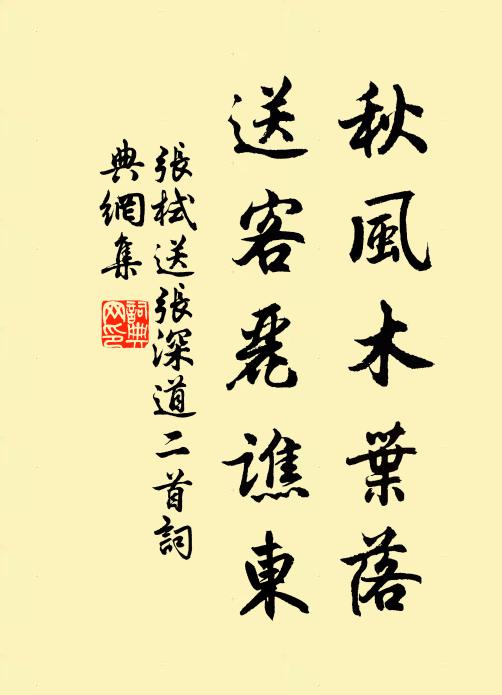 秋風木葉落
送客麗譙東
張栻送張深道二首詞
典網集
詞典網印